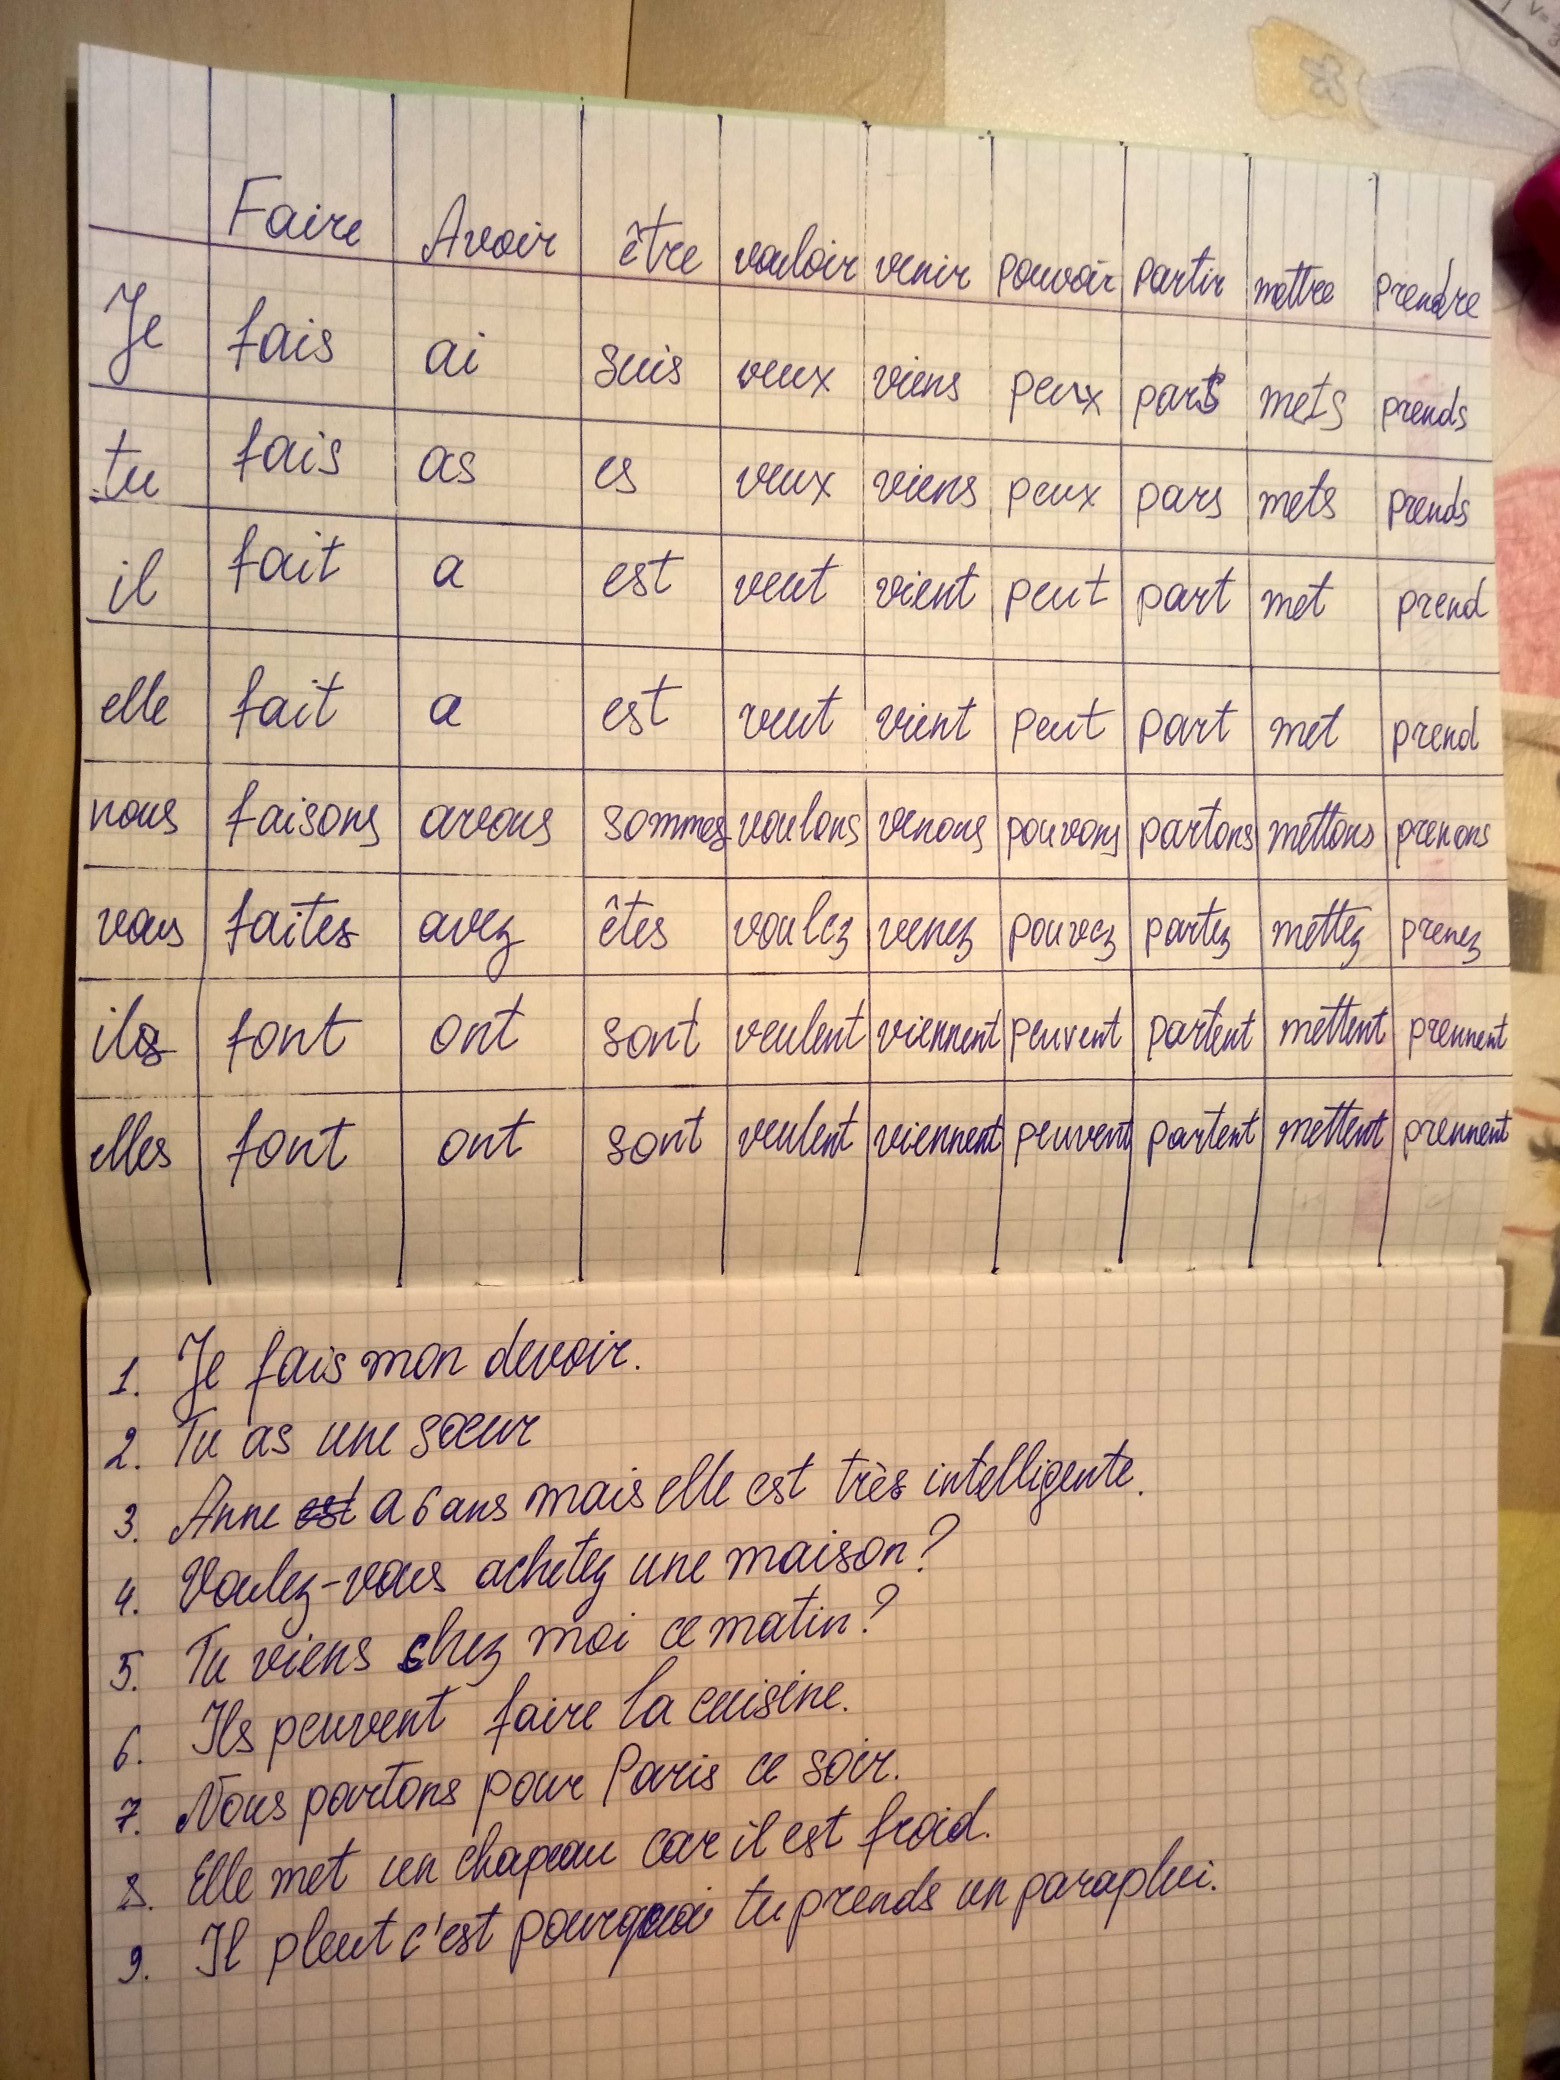 Faire Avoir être vouloir venir pouvoir partir mettre prendre
Je fais ai suis veux viens peux pars mets prends
tu fais as es veux viens peux pars mets prends
il fait a est veut vient peut part met prend
elle fait a est veut vient peut part met prend
nous faisons avons sommes voulons venons pouvons partons mettons prenons
vous faites avez êtes voulez venez pouvez partez mettez prenez
ils font ont sont veulent viennent peuvent partent mettent prennent
elles font ont sont veulent viennent peuvent partent mettent prennent
1. Je fais mon devoir.
2. Tu as une sœur
3. Anne est a 6 ans mais elle est très intelligente.
4. Voulez-vous achetez une maison?
5. Tu viens chez moi ce matin?
6. Ils peuvent faire la cuisine.
7. Nous partons pour Paris ce soir.
8. Elle met un chapeau car il est froid.
9. Il pleut c'est pourquoi tu prends un paraplui.